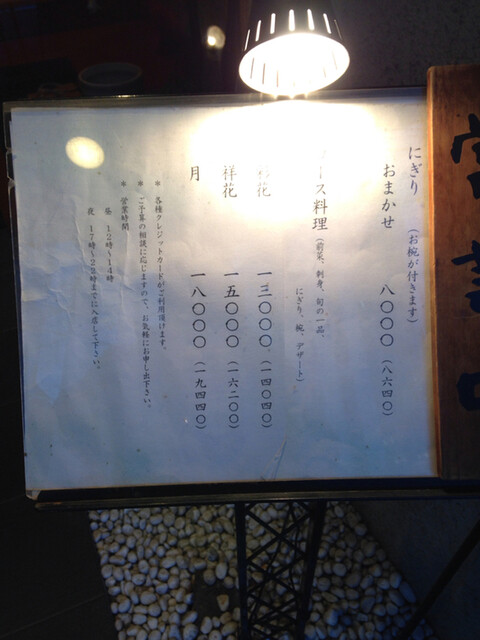 にぎり (お椀が付きます)
おまかせ 八〇〇〇 (八六四〇)
ース料理 (前菜、刺身、旬の一品、
にぎり、椀、デザート)
花 一三〇〇〇 (一四〇四〇)
祥花 一五〇〇〇 (一六二〇〇)
月 一八〇〇〇 (一九四四〇)
* 各種クレジットカードがご利用頂けます。
* ご予算の相談に応じますので、お気軽にお申し出下さい。
* 営業時間
昼 12時〜14時
夜 17時〜22時までに入店して下さい。
営業中